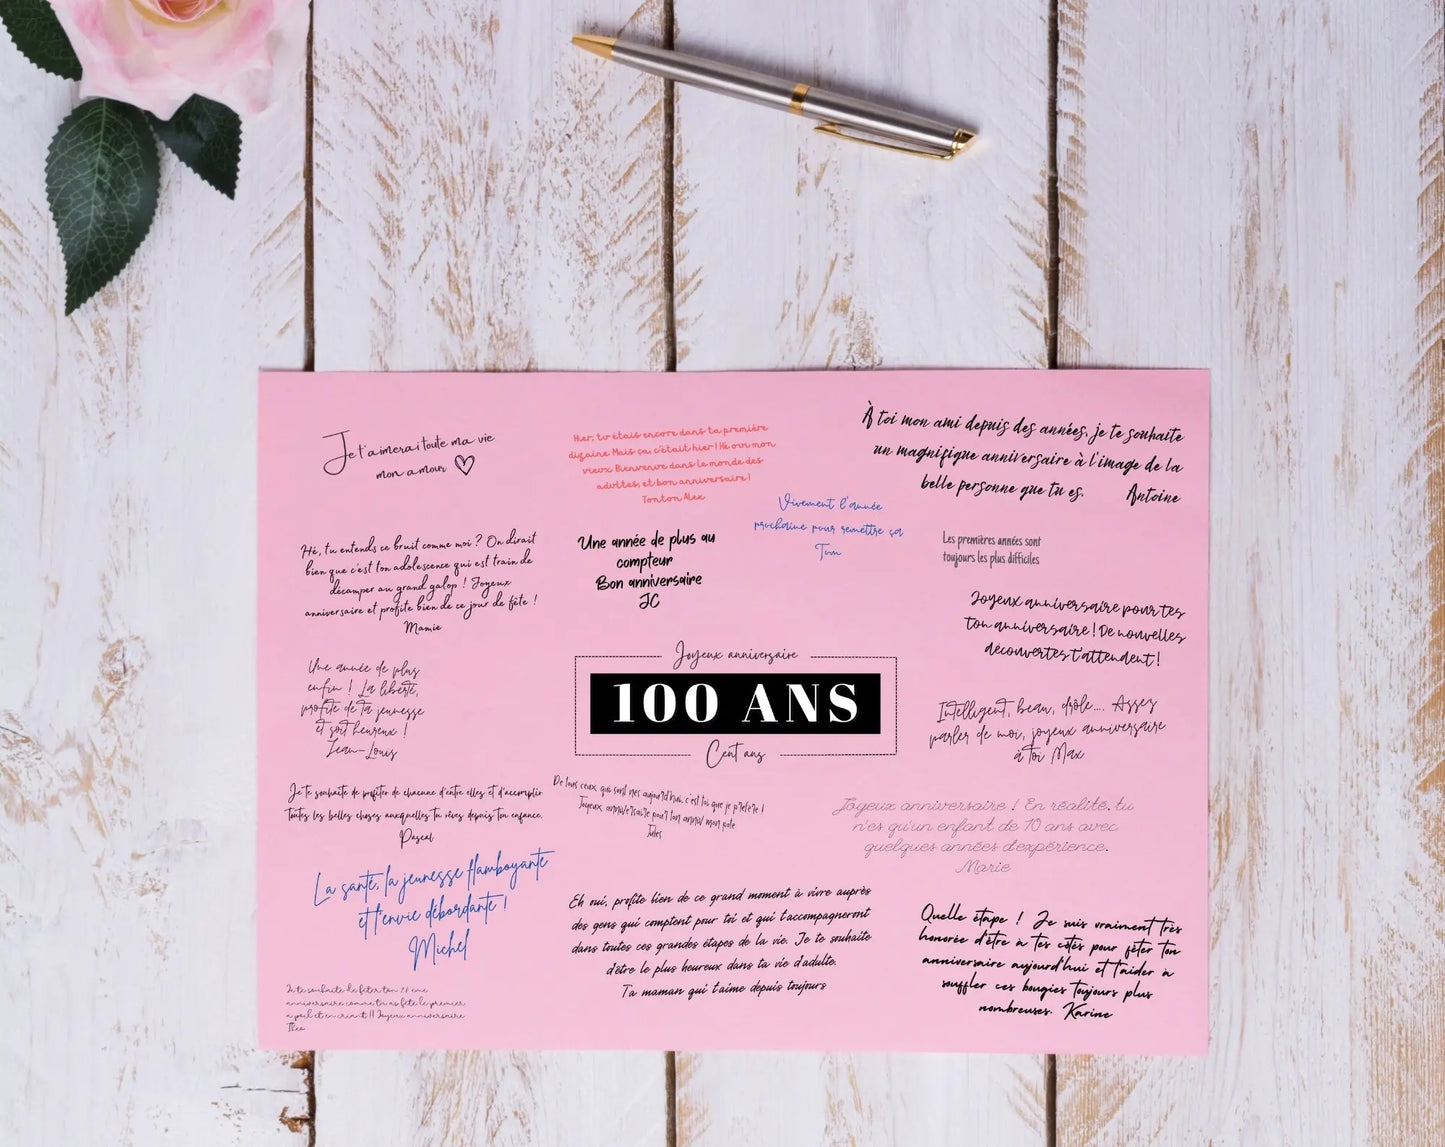 Je t'aimerai toute ma vie
mon amour
Hier, tu étais encore dans ta première
dizaine. Mais ça, c'était hier ! Hé oui mon
vieux. Bienvenue dans le monde des
adultes, et bon anniversaire !
Tonton Alex
À toi mon ami depuis des années, je te souhaite
un magnifique anniversaire à l'image de la
belle personne que tu es. Antoine
Vivement l'année
prochaine pour remettre ça
Tom
Hé, tu entends ce bruit comme moi ? On dirait
bien que c'est ton adolescence qui est train de
décamper au grand galop ! Joyeux
anniversaire et profite bien de ce jour de fête !
Mamie
Une année de plus au
compteur
Bon anniversaire
JC
Les premières années sont
toujours les plus difficiles
Joyeux anniversaire pour tes
ton anniversaire ! De nouvelles
découvertes t'attendent !
Une année de plus
enfin ! La liberté,
profite de ta jeunesse
et soit heureux !
Jean-Louis
Joyeux anniversaire
100 ANS
Cent ans
Intelligent, beau, drôle.... Assez
parler de moi, joyeux anniversaire
à toi Max
Je te souhaite de profiter de chacune d'entre elles et d'accomplir
toutes les belles choses auxquelles tu rêves depuis ton enfance.
Pascal
De tous ceux qui sont nés aujourd'hui, c'est toi que je préfère !
Joyeux anniversaire pour ton anniv mon pote
Jules
Joyeux anniversaire ! En réalité, tu
n'es qu'un enfant de 10 ans avec
quelques années d'expérience.
Marie
La santé, la jeunesse flamboyante
et l'envie débordante !
Michel
Eh oui, profite bien de ce grand moment à vivre auprès
des gens qui comptent pour toi et qui t'accompagneront
dans toutes ces grandes étapes de la vie. Je te souhaite
d'être le plus heureux dans ta vie d'adulte.
Ta maman qui t'aime depuis toujours
Quelle étape ! Je suis vraiment très
honorée d'être à tes côtés pour fêter ton
anniversaire aujourd'hui et t'aider à
souffler ces bougies toujours plus
nombreuses. Karine
Je te souhaite de fêter ton ème
anniversaire comme tu as fêté le premier
à poil et en criant !! Joyeux anniversaire
Théo